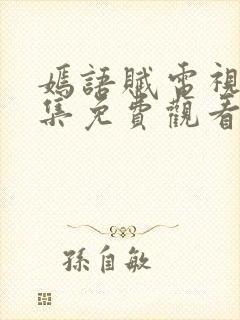 嫣語賦電視
集免費觀看
孫自敏